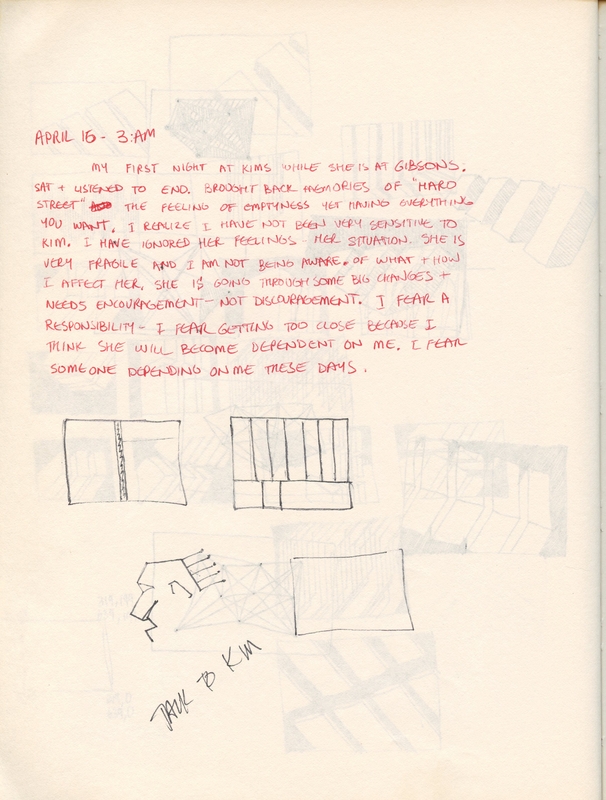 APRIL 15 - 3:AM
MY FIRST NIGHT AT KIMS WHILE SHE IS AT GIBSONS.
SAT + LISTENED TO END. BROUGHT BACK MEMORIES OF "HARO
STREET" THE FEELING OF EMPTYNESS YET HAVING EVERYTHING
YOU WANT. I REALIZE I HAVE NOT BEEN VERY SENSITIVE TO
KIM. I HAVE IGNORED HER FEELINGS - HER SITUATION. SHE IS
VERY FRAGILE AND I AM NOT BEING AWARE. OF WHAT + HOW
I AFFECT HER. SHE IS GOING THROUGH SOME BIG CHANGES +
NEEDS ENCOURAGEMENT - NOT DISCOURAGEMENT. I FEAR A
RESPONSIBILITY - I FEAR GETTING TOO CLOSE BECAUSE I
THINK SHE WILL BECOME DEPENDENT ON ME. I FEAR
SOMEONE DEPENDING ON ME THESE DAYS.
TALK TO KIM